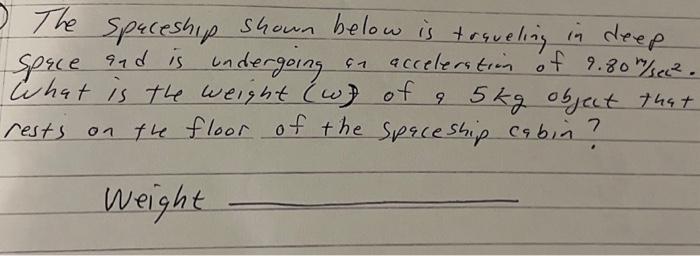 The spaceship shown below is traveling in deep
space and is undergoing an acceleration of 9.80 m/sec².
What is the weight (w) of a 5kg object that
rests on the floor of the spaceship cabin?
Weight